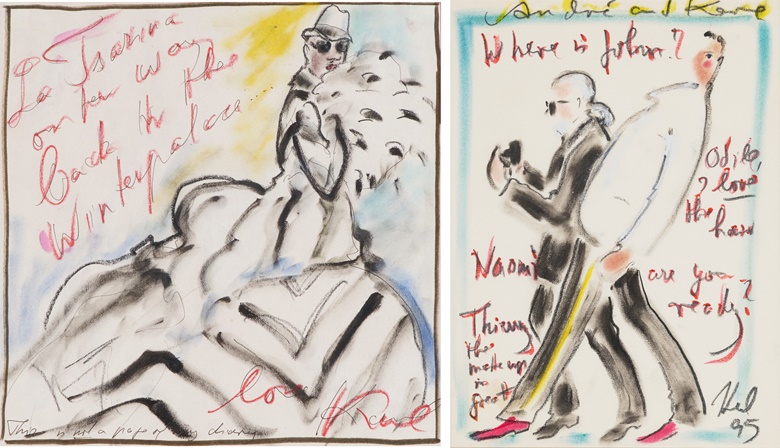 La Tsarina
on her way
back to the
Winterpalace....
love Karl
This is not a page of my diary
André and Karl
Where is John?
Odile,
I love
the hair
Naomi
are you
ready?
Thierry,
the
make up
is
great!
Karl
95